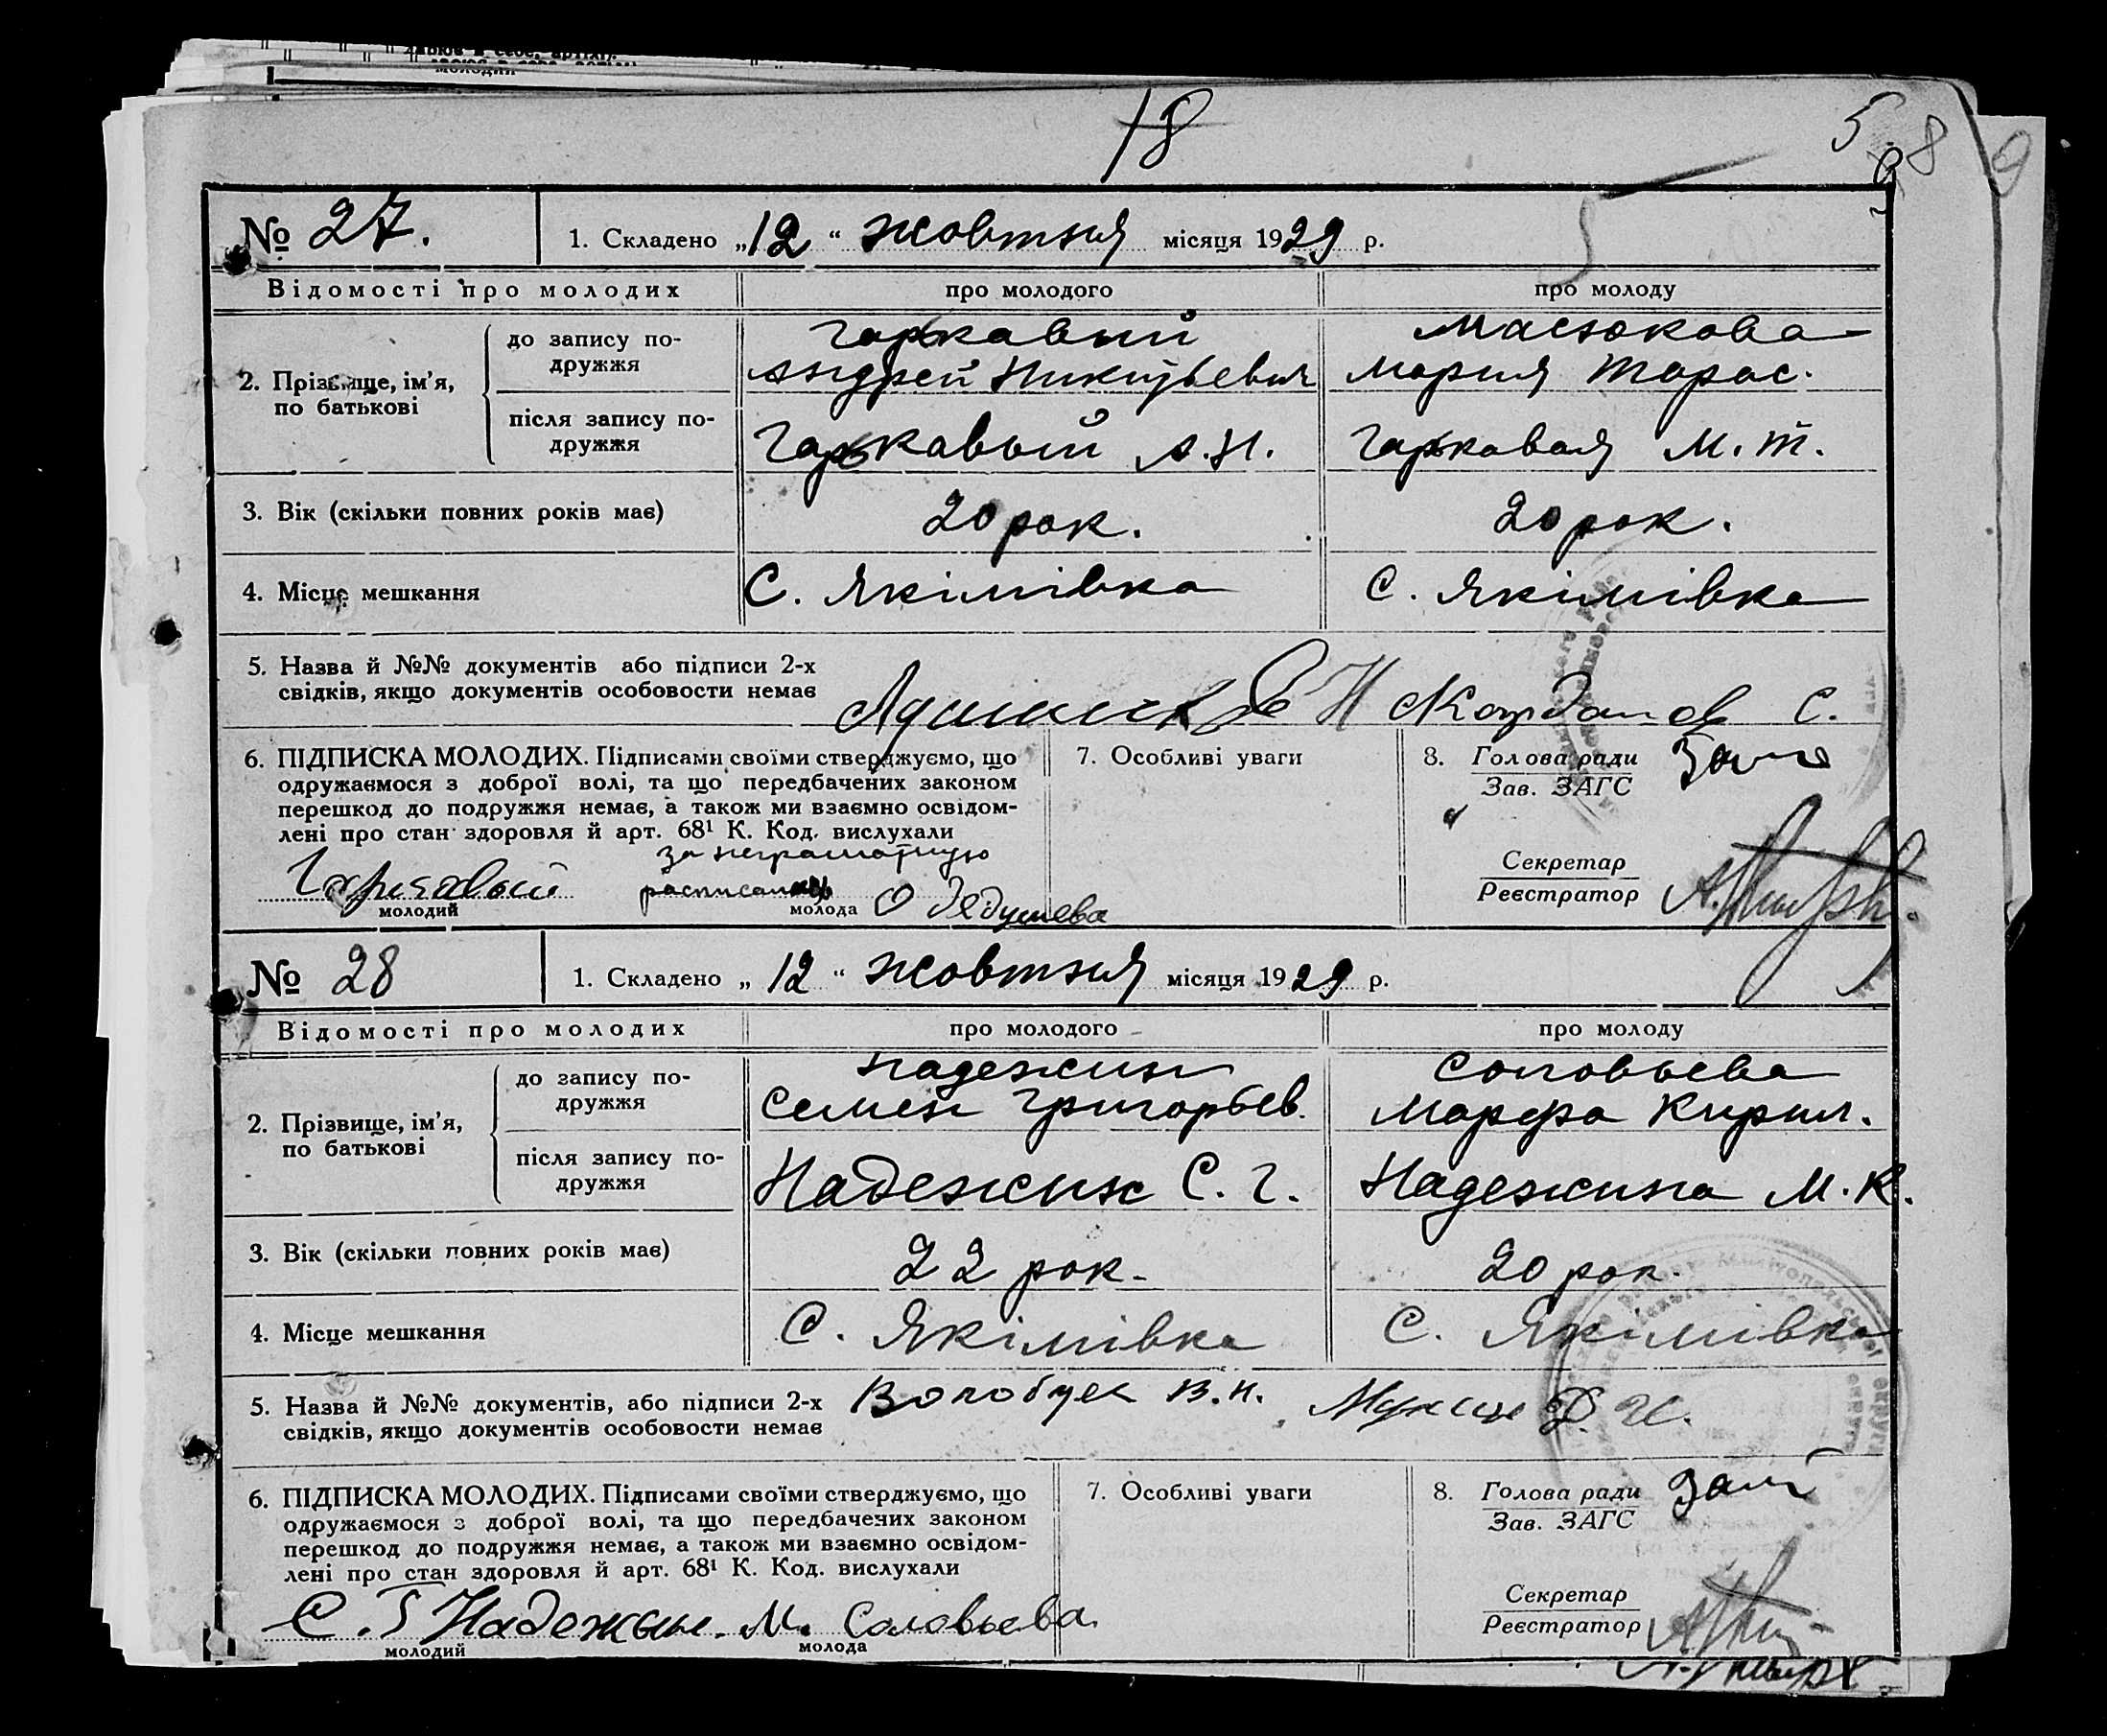 18
5 8 9
№ 27. 1. Складено „12“ жовтня місяця 1929 р.
Відомості про молодих про молодого про молоду
2. Прізвище, ім’я, по батькові
до запису подружжя
Гарькавый Масюкова
Андрей Никитьевич Мария Тарас.
після запису подружжя
Гарькавый А.Н. Гарькавая М.Т.
3. Вік (скільки повних років має) 20 рок. 20 рок.
4. Місце мешкання С. Якімівка С. Якімівка
5. Назва й №№ документів або підписи 2-х
свідків, якщо документів особовости немає
С.
6. ПІДПИСКА МОЛОДИХ. Підписами своїми стверджуємо, що
одружаємося з доброї волі, та що передбачених законом
перешкод до подружжя немає, а також ми взаємно освідом-
лені про стан здоровля й арт. 68¹ К. Код. вислухали
за неграмотную
Гарькавый расписалась О Дедушева
молодий молода
7. Особливі уваги
8. Голова ради
Зав. ЗАГС
Секретар
Реєстратор
№ 28 1. Складено „12“ жовтня місяця 1929 р.
Відомості про молодих про молодого про молоду
2. Прізвище, ім’я, по батькові
до запису подружжя
Надежин Соловьева
Семен Григорьев. Марфа Кирил.
після запису подружжя
Надежин С. Г. Надежина М. К.
3. Вік (скільки повних років має) 22 рок. 20 рок.
4. Місце мешкання С. Якімівка С. Якімівка
5. Назва й №№ документів, або підписи 2-х
свідків, якщо документів особовости немає
В.Н.
6. ПІДПИСКА МОЛОДИХ. Підписами своїми стверджуємо, що
одружаємося з доброї волі, та що передбачених законом
перешкод до подружжя немає, а також ми взаємно освідом-
лені про стан здоровля й арт. 68¹ К. Код. вислухали
С. Г Надежын. М. Соловьева
молодий молода
7. Особливі уваги
8. Голова ради Зам
Зав. ЗАГС
Секретар
Реєстратор